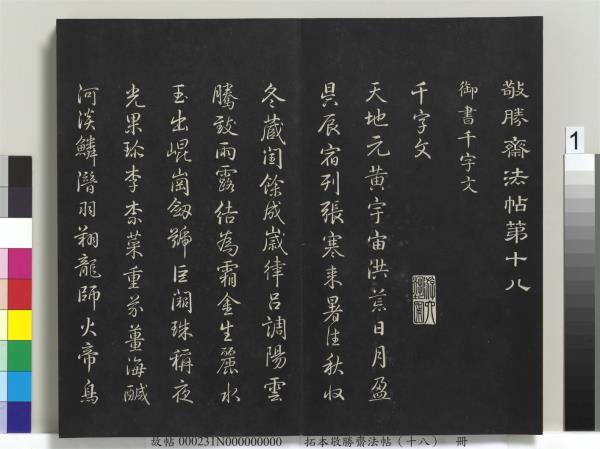 敬勝齋法帖第十八
御書千字文
千字文
天地元黃宇宙洪荒日月盈
昃辰宿列張寒來暑往秋收
冬藏閏餘成歲律呂調陽雲
騰致雨露結為霜金生麗水
玉出崐崗劒號巨闕珠稱夜
光果珍李柰菜重芥薑海醎
河淡鱗潛羽翔龍師火帝鳥
1
故帖 000231N000000000 拓本敬勝齋法帖（十八） 冊